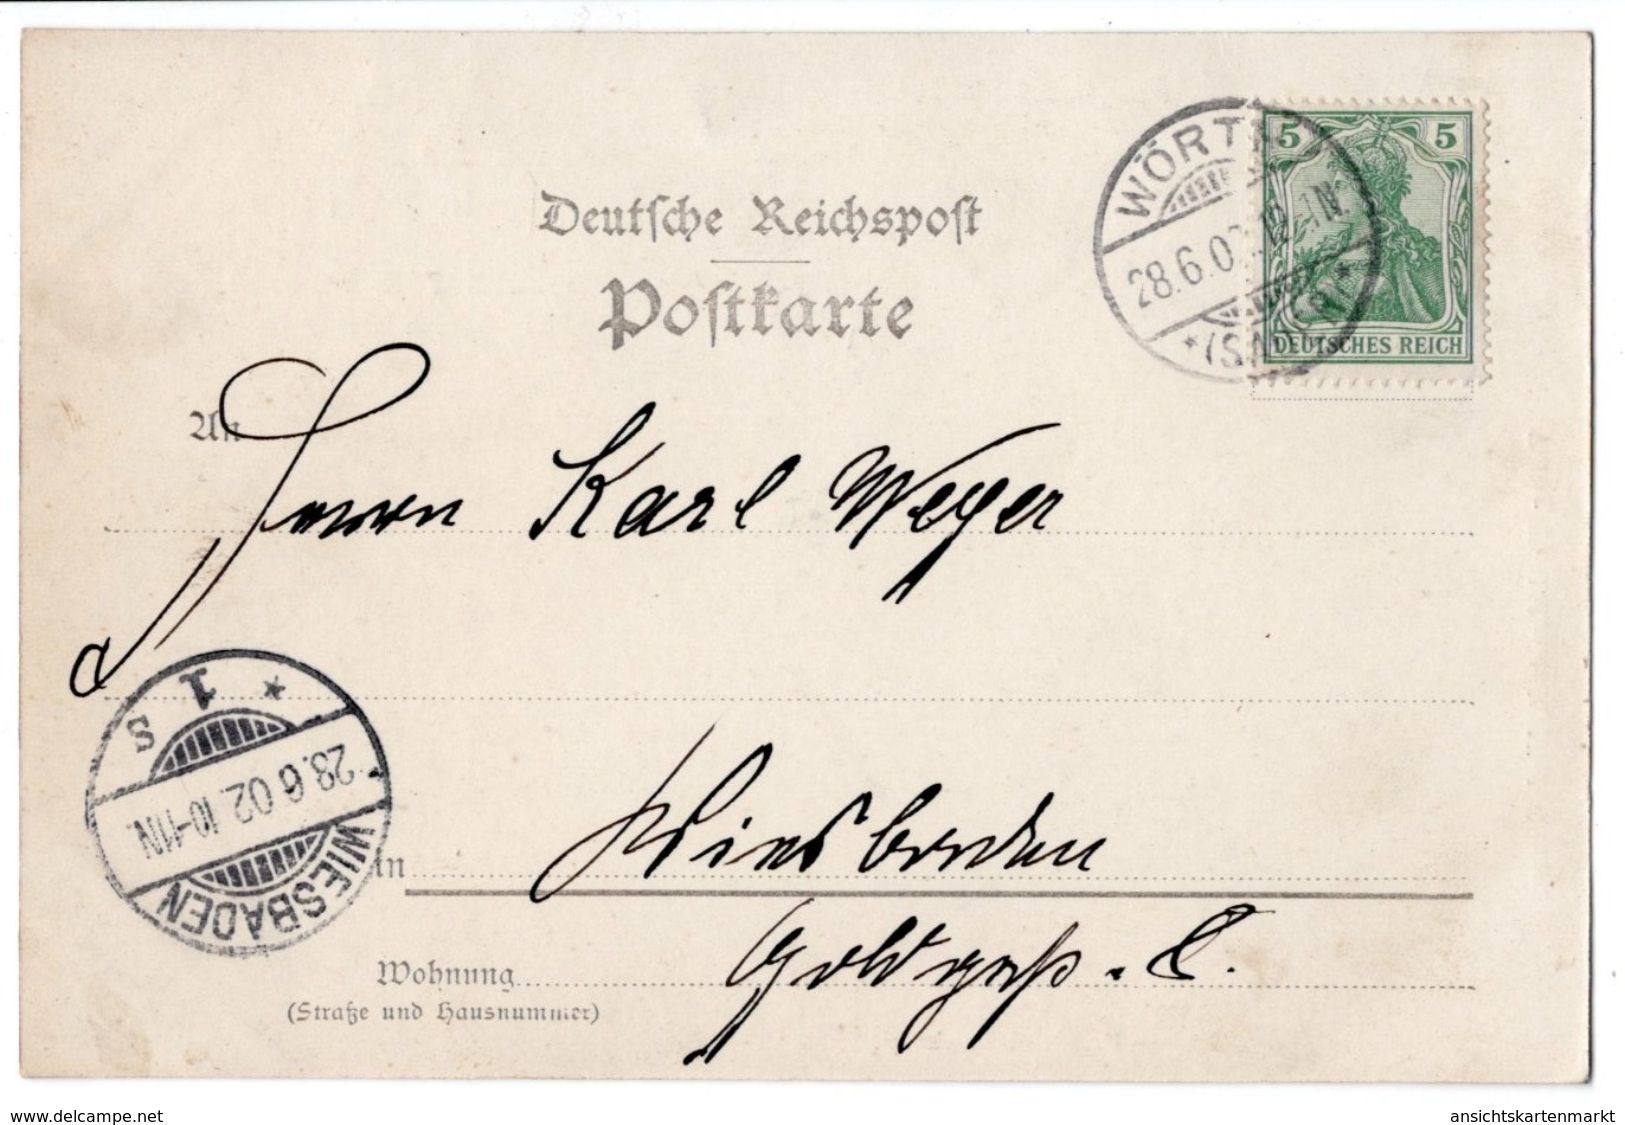 Deutsche Reichspost
Postkarte
WÖRTH
28.6.02. 12-1N.
* (SAUER) *
5 5
DEUTSCHES REICH
An
Herrn Karl Weyer
* 1 S
28.6.02.10-11N.
WIESBADEN
in Wiesbaden
Wohnung Goldgaß.
(Straße und Hausnummer)
www.delcampe.net
ansichtskartenmarkt